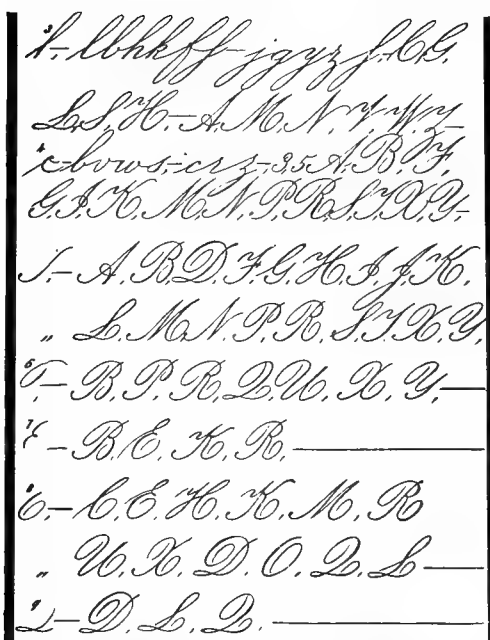 3 l–lbhkff–jgyzf.C,G.
L,S,H,–A,M,N,V,W,Y–
4 c–bvws,–crz–3,5A,B,F,
G,I,K,M,N,P,R,S,T,X,Y–
/–A,B,D,F,G,H,I,J,K.
„ L,M,N,P,R,S,T,X,Y,
–B,P,R,Q,U,X,Y,—
7 –B,E,K,R,—
8 –C,E,H,K,M,R
„ U,X,D,O,Q,L—
9 –D,L,Q,—